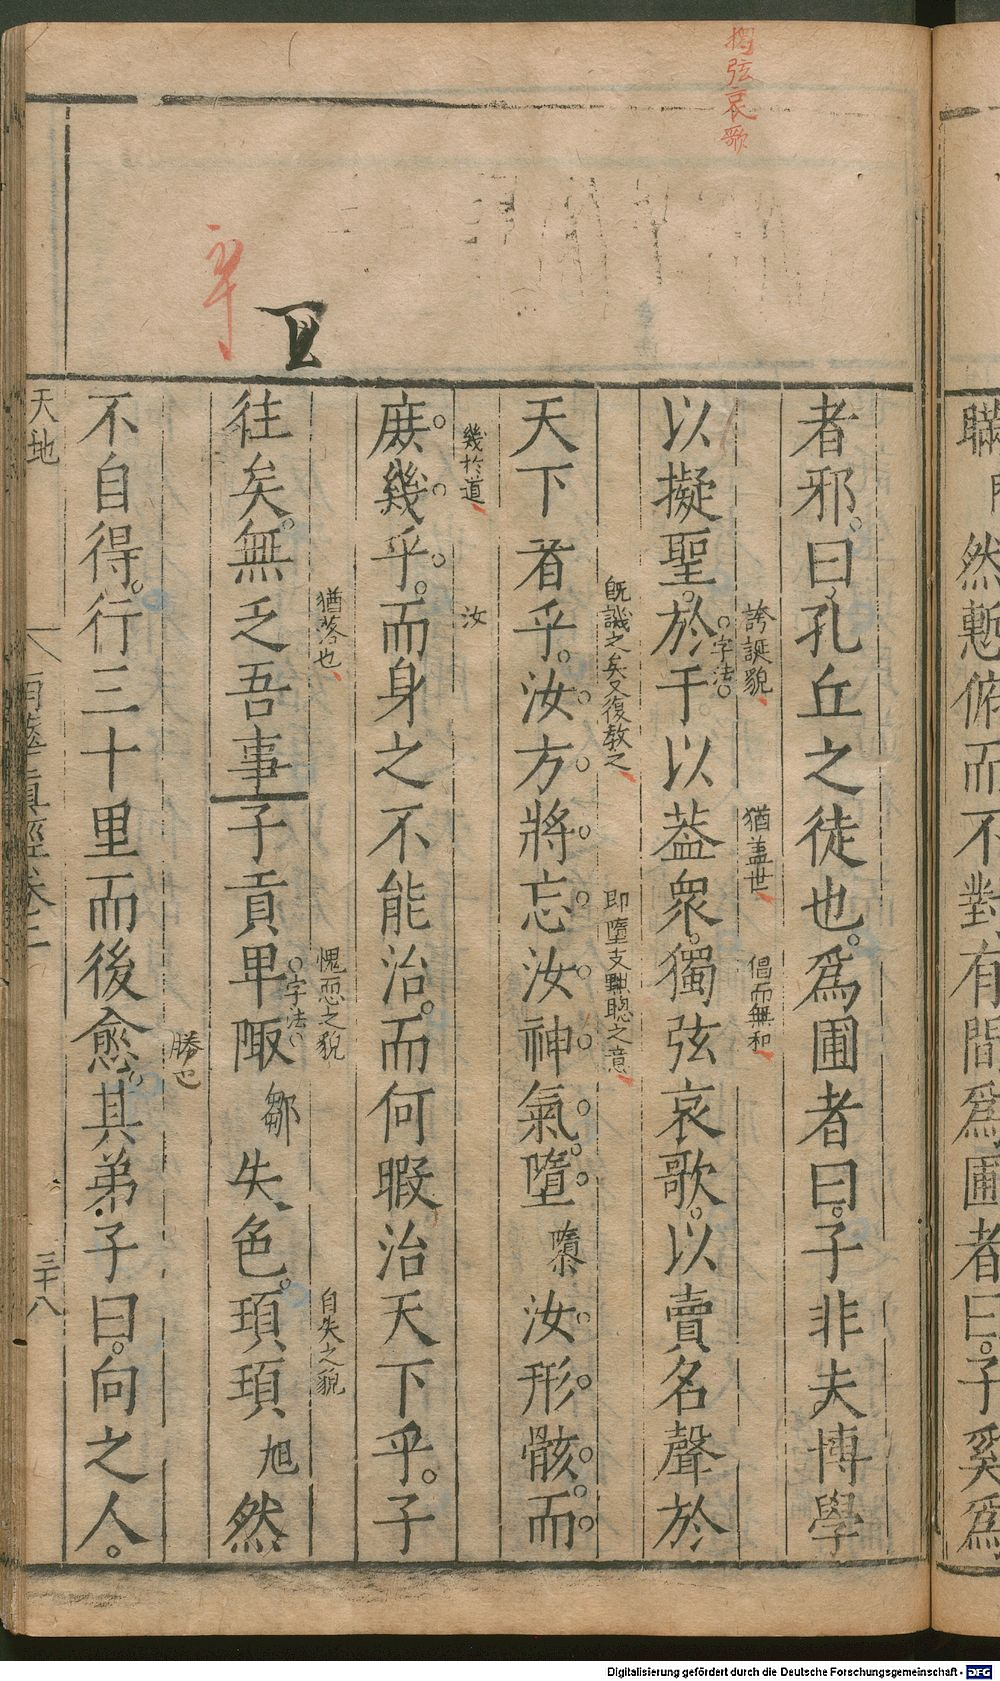 瞞
然慙俯而不對有間爲圃者曰子奚爲
獨弦哀歌
者邪曰孔丘之徒也爲圃者曰子非夫博學
誇誕貌
猶蓋世
倡而無和
字法
以擬聖於于以蓋衆獨弦哀歌以賣名聲於
旣譏之矣又復教之
即墮支黜聰之意
天下者乎汝方將忘汝神氣墮隳汝形骸而
幾於道
汝
庶幾乎而身之不能治而何暇治天下乎子
猶落也
愧恧之貌
自失之貌
字法
往矣無乏吾事子貢卑陬鄒失色頊頊旭然
勝也
不自得行三十里而後愈其弟子曰向之人
天地
三十八
Digitalisierung gefördert durch die Deutsche Forschungsgemeinschaft - DFG